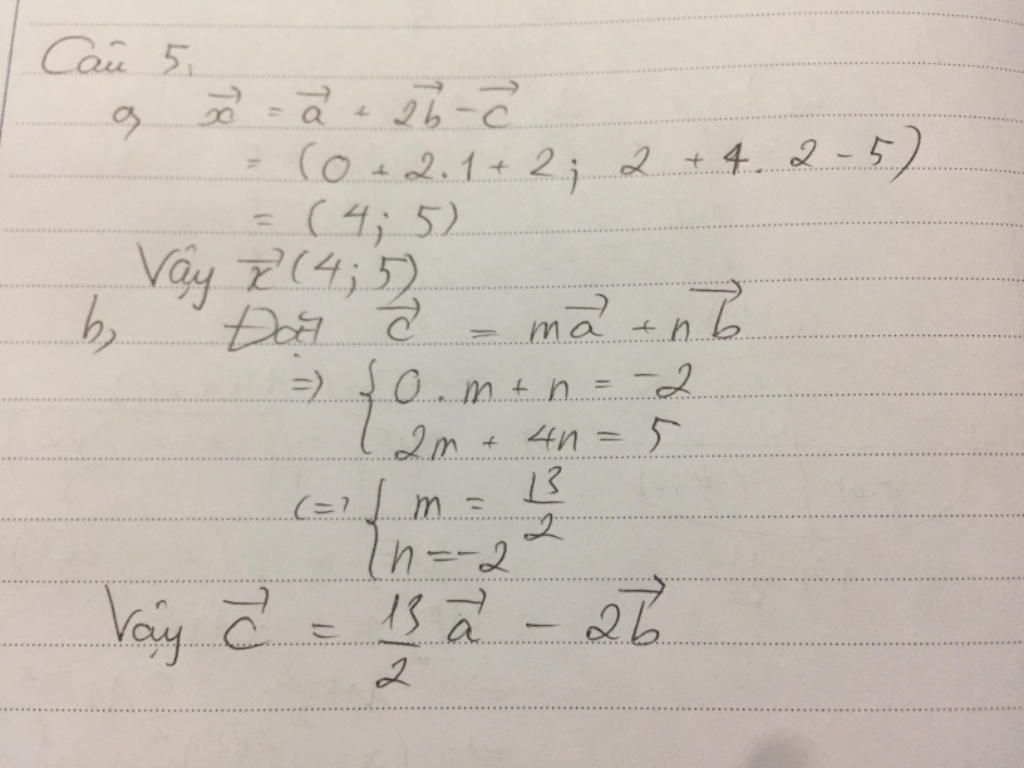 Câu 5.
a, x⃗ = a⃗ + 2b⃗ - c⃗
= (0 + 2.1 + 2; 2 + 4. 2 - 5)
= (4; 5)
Vậy x⃗ (4; 5)
b, Đặt c⃗ = ma⃗ + nb⃗
=> { 0 . m + n = -2
2m + 4n = 5
<=> { m = 13/2
n = -2
Vậy c⃗ = 13/2 a⃗ - 2b⃗